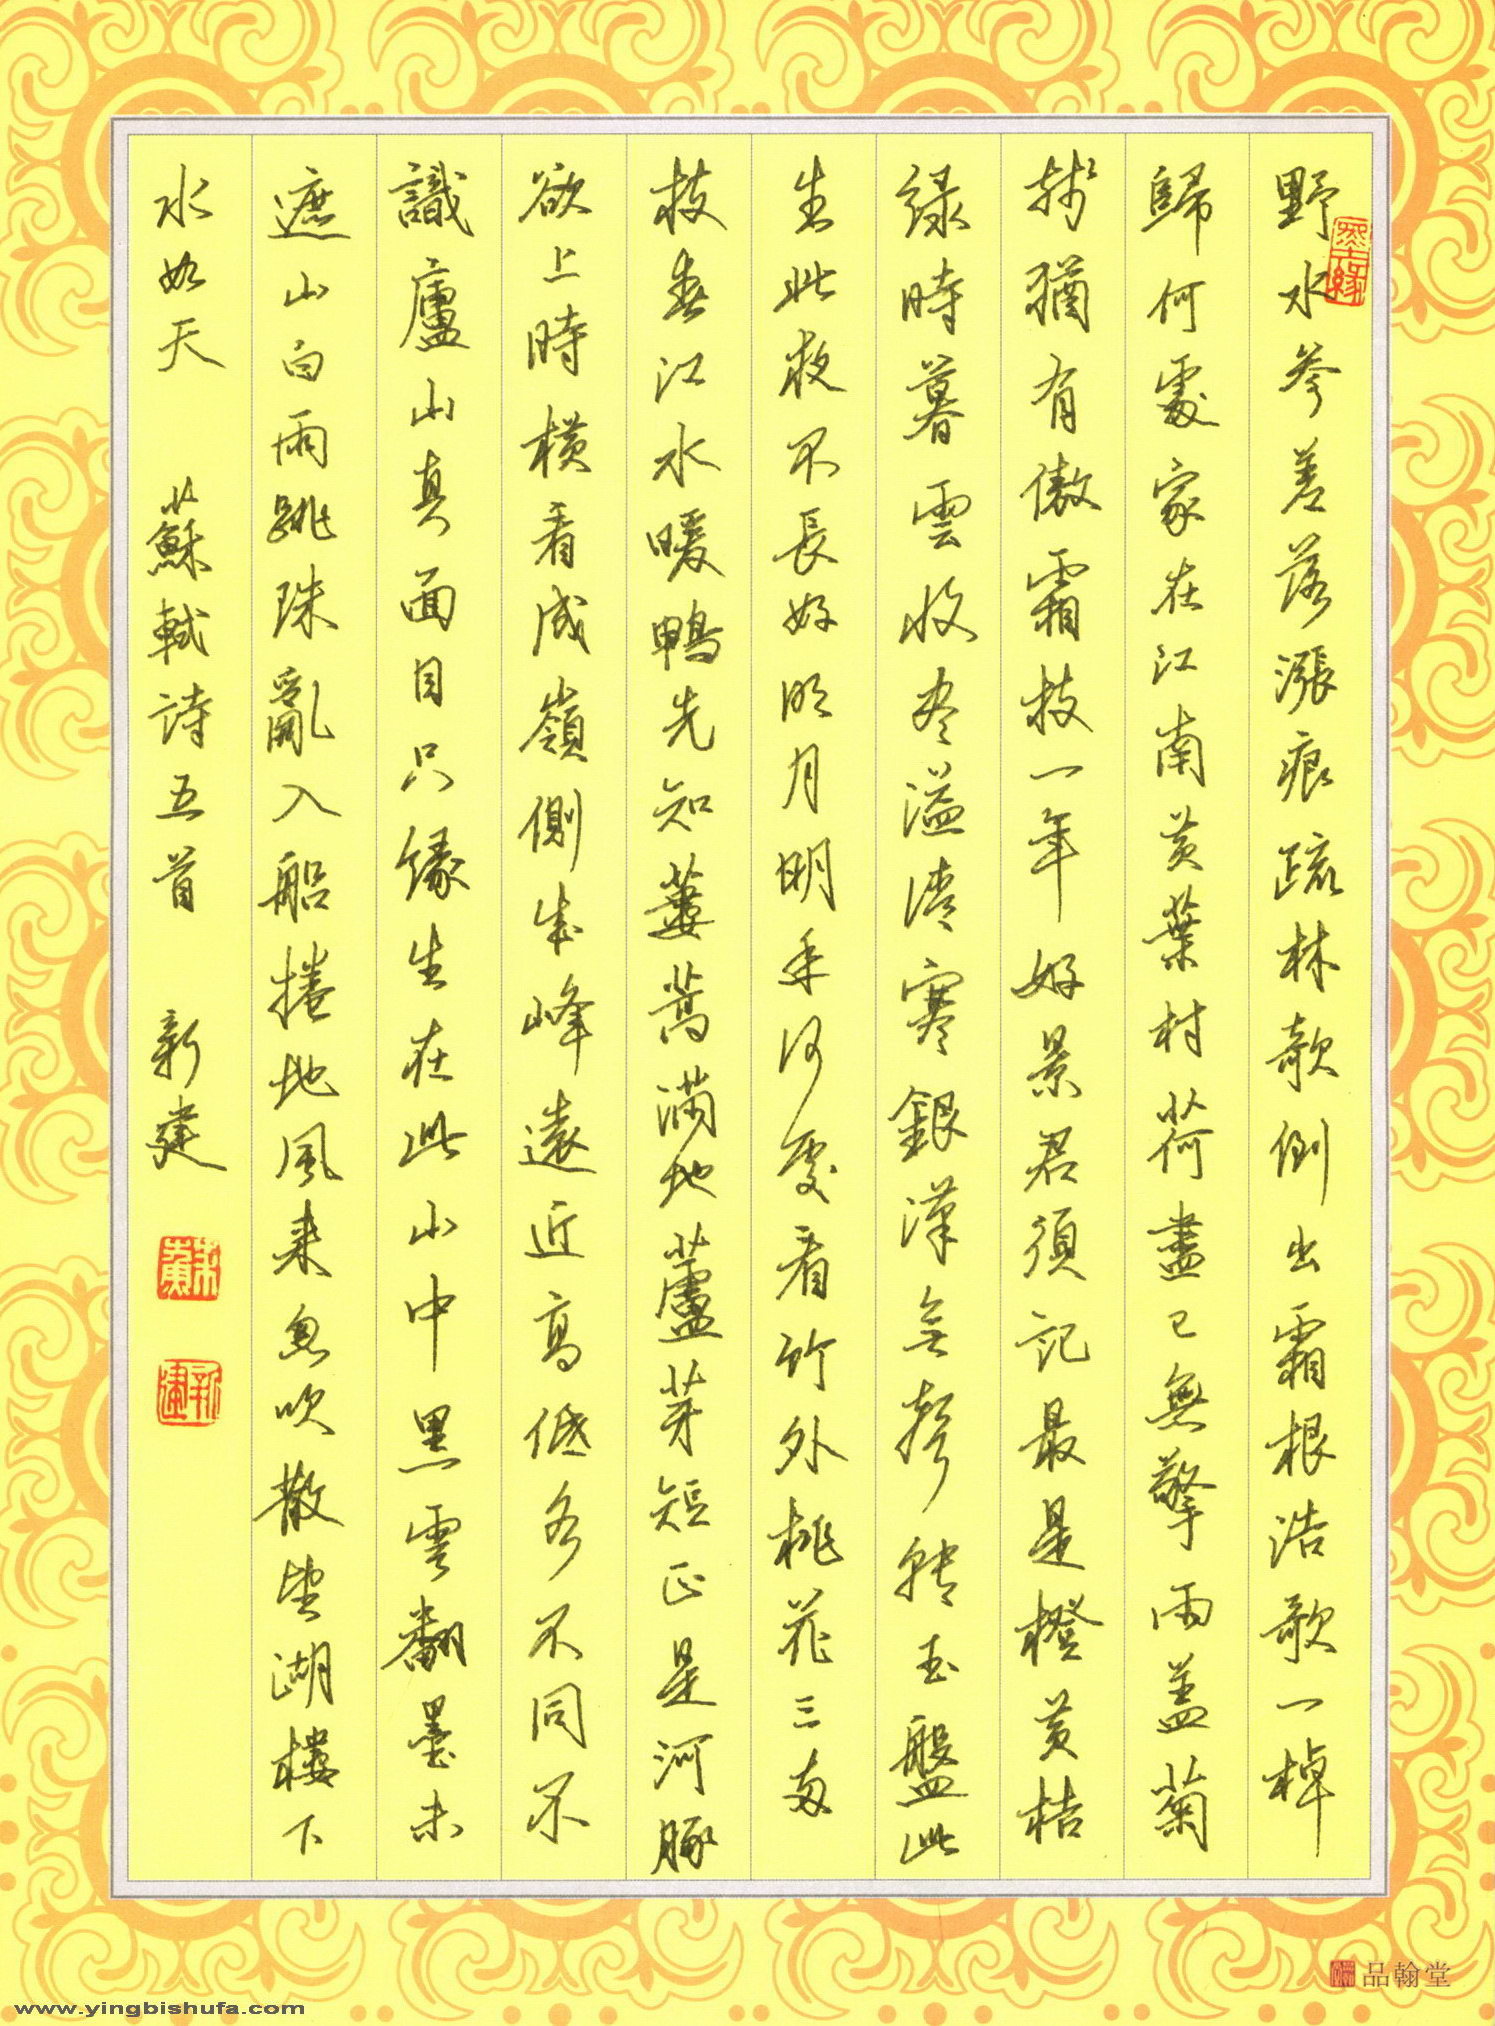 野水參差落漲痕疏林欹倒出霜根浩歌一棹
歸何處家在江南黃葉村荷盡已無擎雨盖菊
殘猶有傲霜枝一年好景君須記最是橙黃桔
綠時暮雲收盡溢清寒銀漢無聲轉玉盤此
生此夜不長好明月明年何處看竹外桃花三兩
枝春江水暖鴨先知蔞蒿滿地蘆芽短正是河豚
欲上時橫看成嶺側成峰遠近高低各不同不
識廬山真面目只緣生在此山中黑雲翻墨未
遮山白雨跳珠亂入船捲地風來忽吹散望湖樓下
水如天 蘇軾詩五首 新建
新建
品翰堂
www.yingbishufa.com